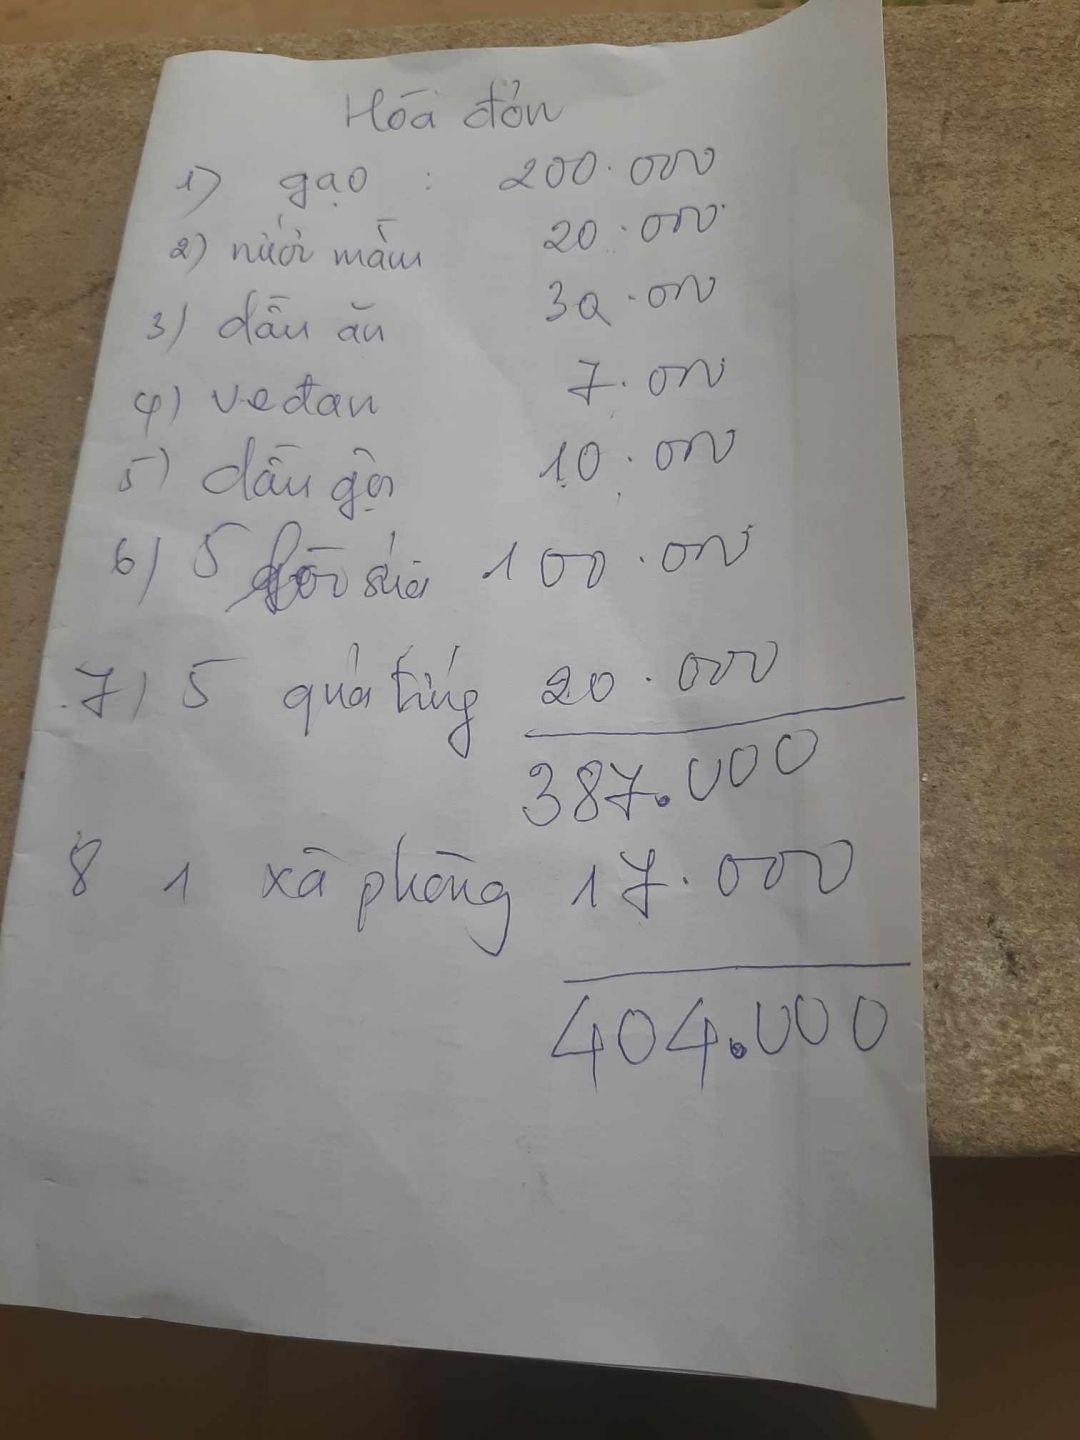 Hóa đơn
1) gạo : 200.000
2) nước mắm 20.000
3) dầu ăn 30.000
4) vedan 7.000
5) dầu gội 10.000
6) 5 sữa 100.000
7) 5 quả trứng 20.000
387.000
8 1 xà phòng 17.000
404.000